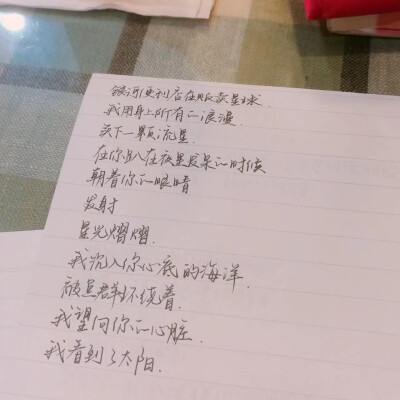 银河便利店在贩卖星球.
我用身上所有的浪漫.
买下一颗流星.
在你趴在夜里发呆的时候
朝着你的眼睛
发射
星光熠熠.
我沉入你心底的海洋.
被星群环绕着.
我望向你的心脏.
我看到了太阳.